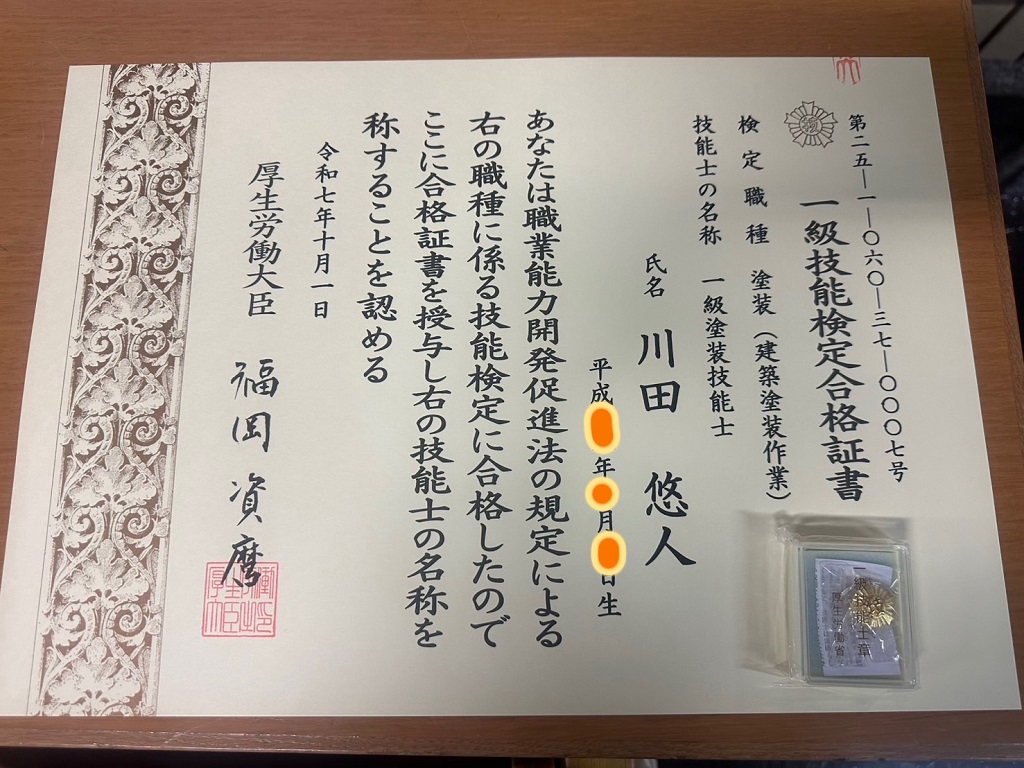 第二五―一―〇六〇―三七―〇〇〇七号
一級技能検定合格証書
検定職種 塗装（建築塗装作業）
技能士の名称 一級塗装技能士
氏名 川田 悠人
平成 年 月 日生
あなたは職業能力開発促進法の規定による
右の職種に係る技能検定に合格したので
ここに合格証書を授与し右の技能士の名称を
称することを認める
令和七年十月一日
厚生労働大臣 福岡 資麿
一級技能士章
厚生労働省